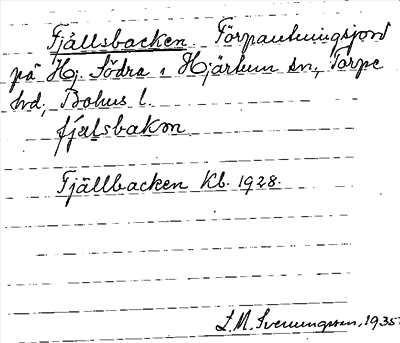 Fjällsbacken Torpavhuvningsjord
på Hg. Södra i Hjärtum sn, Torpe
hd, Bohus l.
fjalsbakɷn
Fjällbacken Kb. 1928.
L.M. Svenungsson, 1935